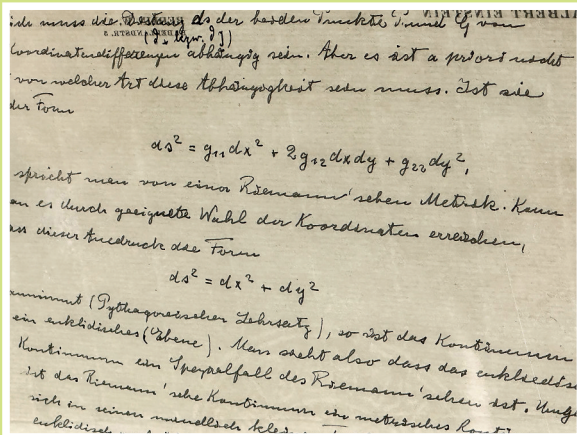 ich muss die ds der beiden Punkte P und G von
Koordinatendifferenzen abhängig sein. Aber es ist a priori nicht
von welcher Art diese Abhängigkeit sein muss. Ist sie
der Form
ds² = g₁₁dx² + 2g₁₂dxdy + g₂₂dy²,
spricht man von einer Riemann'schen Metrik. Kann
man es durch geeignete Wahl der Koordinaten erreichen,
dass dieser Ausdruck die Form
ds² = dx² + dy²
annimmt (Pythagoreischer Lehrsatz), so ist das Kontinuum
ein euklidisches (Ebene). Man sieht also dass das euklidische
Kontinuum ein Spezialfall des Riemann'schen ist. Umge
ist das Riemann'sche Kontinuum ein metrisches Konti
sich in seinen unendlich klein
euklidisch
ALBERT EINSTEIN